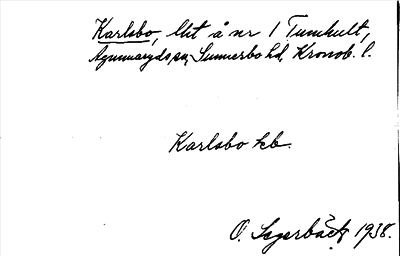 Karlsbo, lht å nr 1 Tunhult,
Agunnaryds sn, Sunnerbo hd, Kronob. l.
Karlsbo hb.
O. Segerbäck 1938.